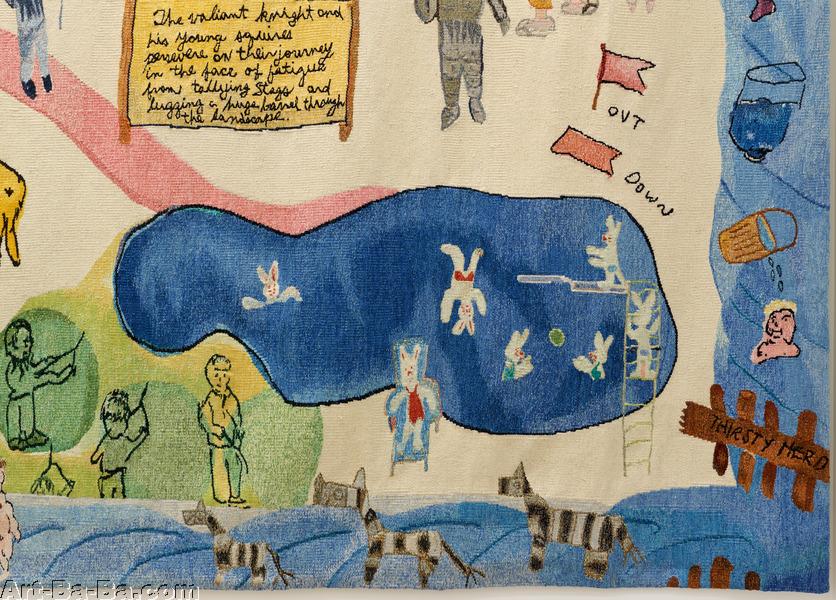 The valiant knight and
his young squires
persevere on their journey
in the face of fatigue
from tallying stags and
lugging a huge barrel through
the landscape.
OUT
DOWN
THIRSTY HERD
Art-Ba-Ba.com